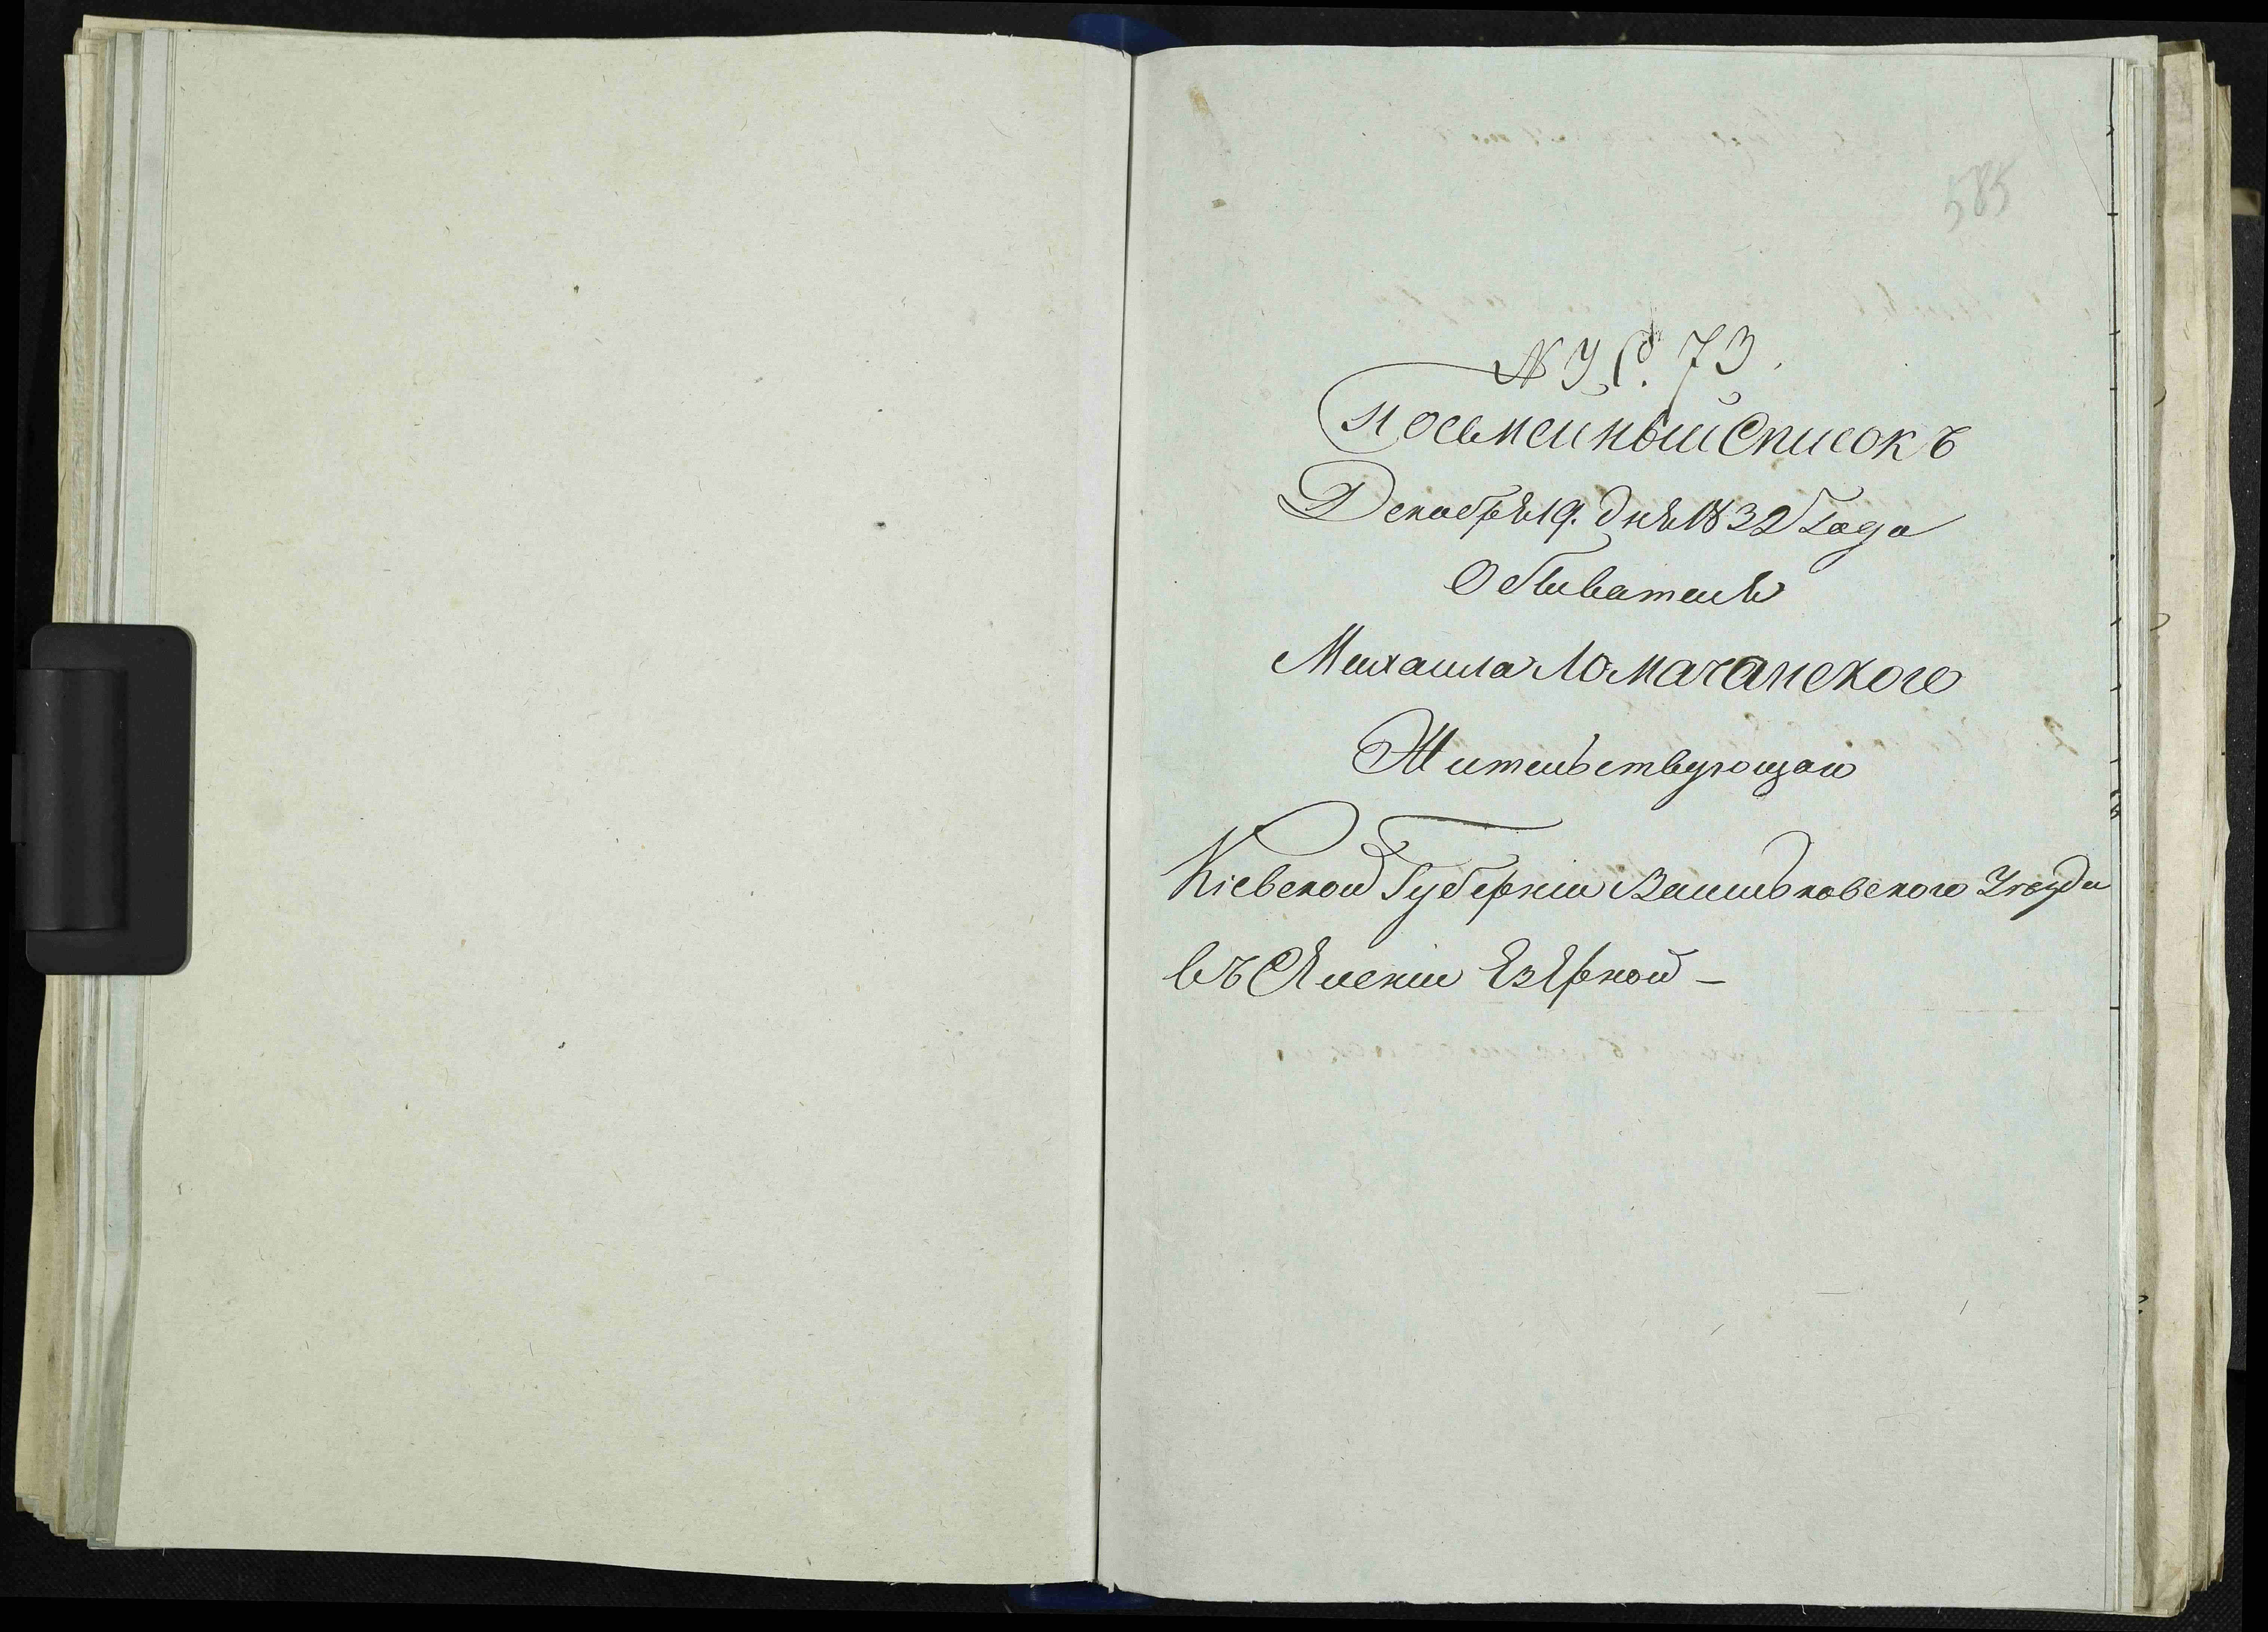 585
№ У. С. 73.
Посемейный Список ъ
Декабря 19. дня 1832 Года
Обывателя
Михаила Ломачанского
Жительствующаго
Кіевской Губерніи Васильковского Уезда
въ Селеніи Езерной –